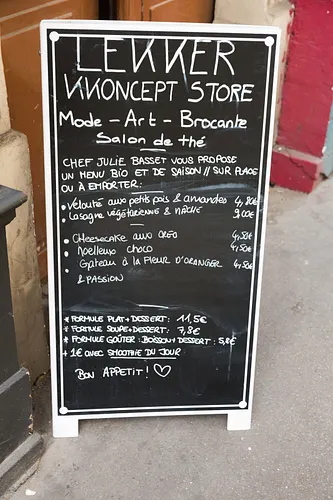 LEKKER
KKONCEPT STORE
Mode - Art - Brocante
Salon de thé
CHEF JULIE BASSET VOUS PROPOSE
UN MENU BIO ET DE SAISON // SUR PLACE
OU À EMPORTER:
• Velouté aux petits pois & amandes 4,80€
• Lasagne végétarienne & mâche 9,00€
• Cheesecake aux OREO 4,50€
• Moelleux choco 4,50€
• Gâteau à la fleur d'oranger 4,50€
& PASSION
* FORMULE PLAT+DESSERT: 11,5€
* FORMULE SOUPE+DESSERT: 7,8€
* FORMULE GOÛTER: BOISSON+DESSERT: 5,8€
+ 1€ AVEC SMOOTHIE DU JOUR
BON APPETIT! ♡